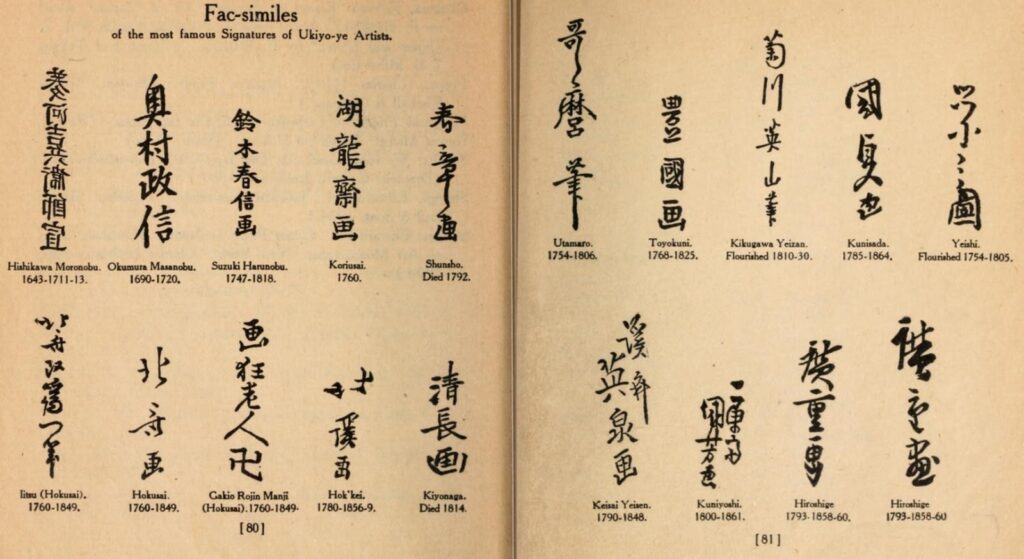 Fac-similes
of the most famous Signatures of Ukiyo-ye Artists.
菱河吉兵衛師宣
Hishikawa Moronobu.
1643-1711-13.
奥村政信
Okumura Masanobu.
1690-1720.
鈴木春信画
Suzuki Harunobu.
1747-1818.
湖龍齋画
Koriusai.
1760.
春章画
Shunsho.
Died 1792.
北斎改為一筆
Iitsu (Hokusai).
1760-1849.
北斎画
Hokusai.
1760-1849.
画狂老人卍
Gakio Rojin Manji
(Hokusai).1760-1849.
北溪画
Hok'kei.
1780-1856-9.
清長画
Kiyonaga.
Died 1814.
[80]
哥麿筆
Utamaro.
1754-1806.
豊國画
Toyokuni.
1768-1825.
菊川英山筆
Kikugawa Yeizan.
Flourished 1810-30.
國貞画
Kunisada.
1785-1864.
栄之圖
Yeishi.
Flourished 1754-1805.
溪斎英泉画
Keisai Yeisen.
1790-1848.
一勇斎
國芳画
Kuniyoshi.
1800-1861.
廣重画
Hiroshige
1793-1858-60.
廣重画
Hiroshige
1793-1858-60
[81]